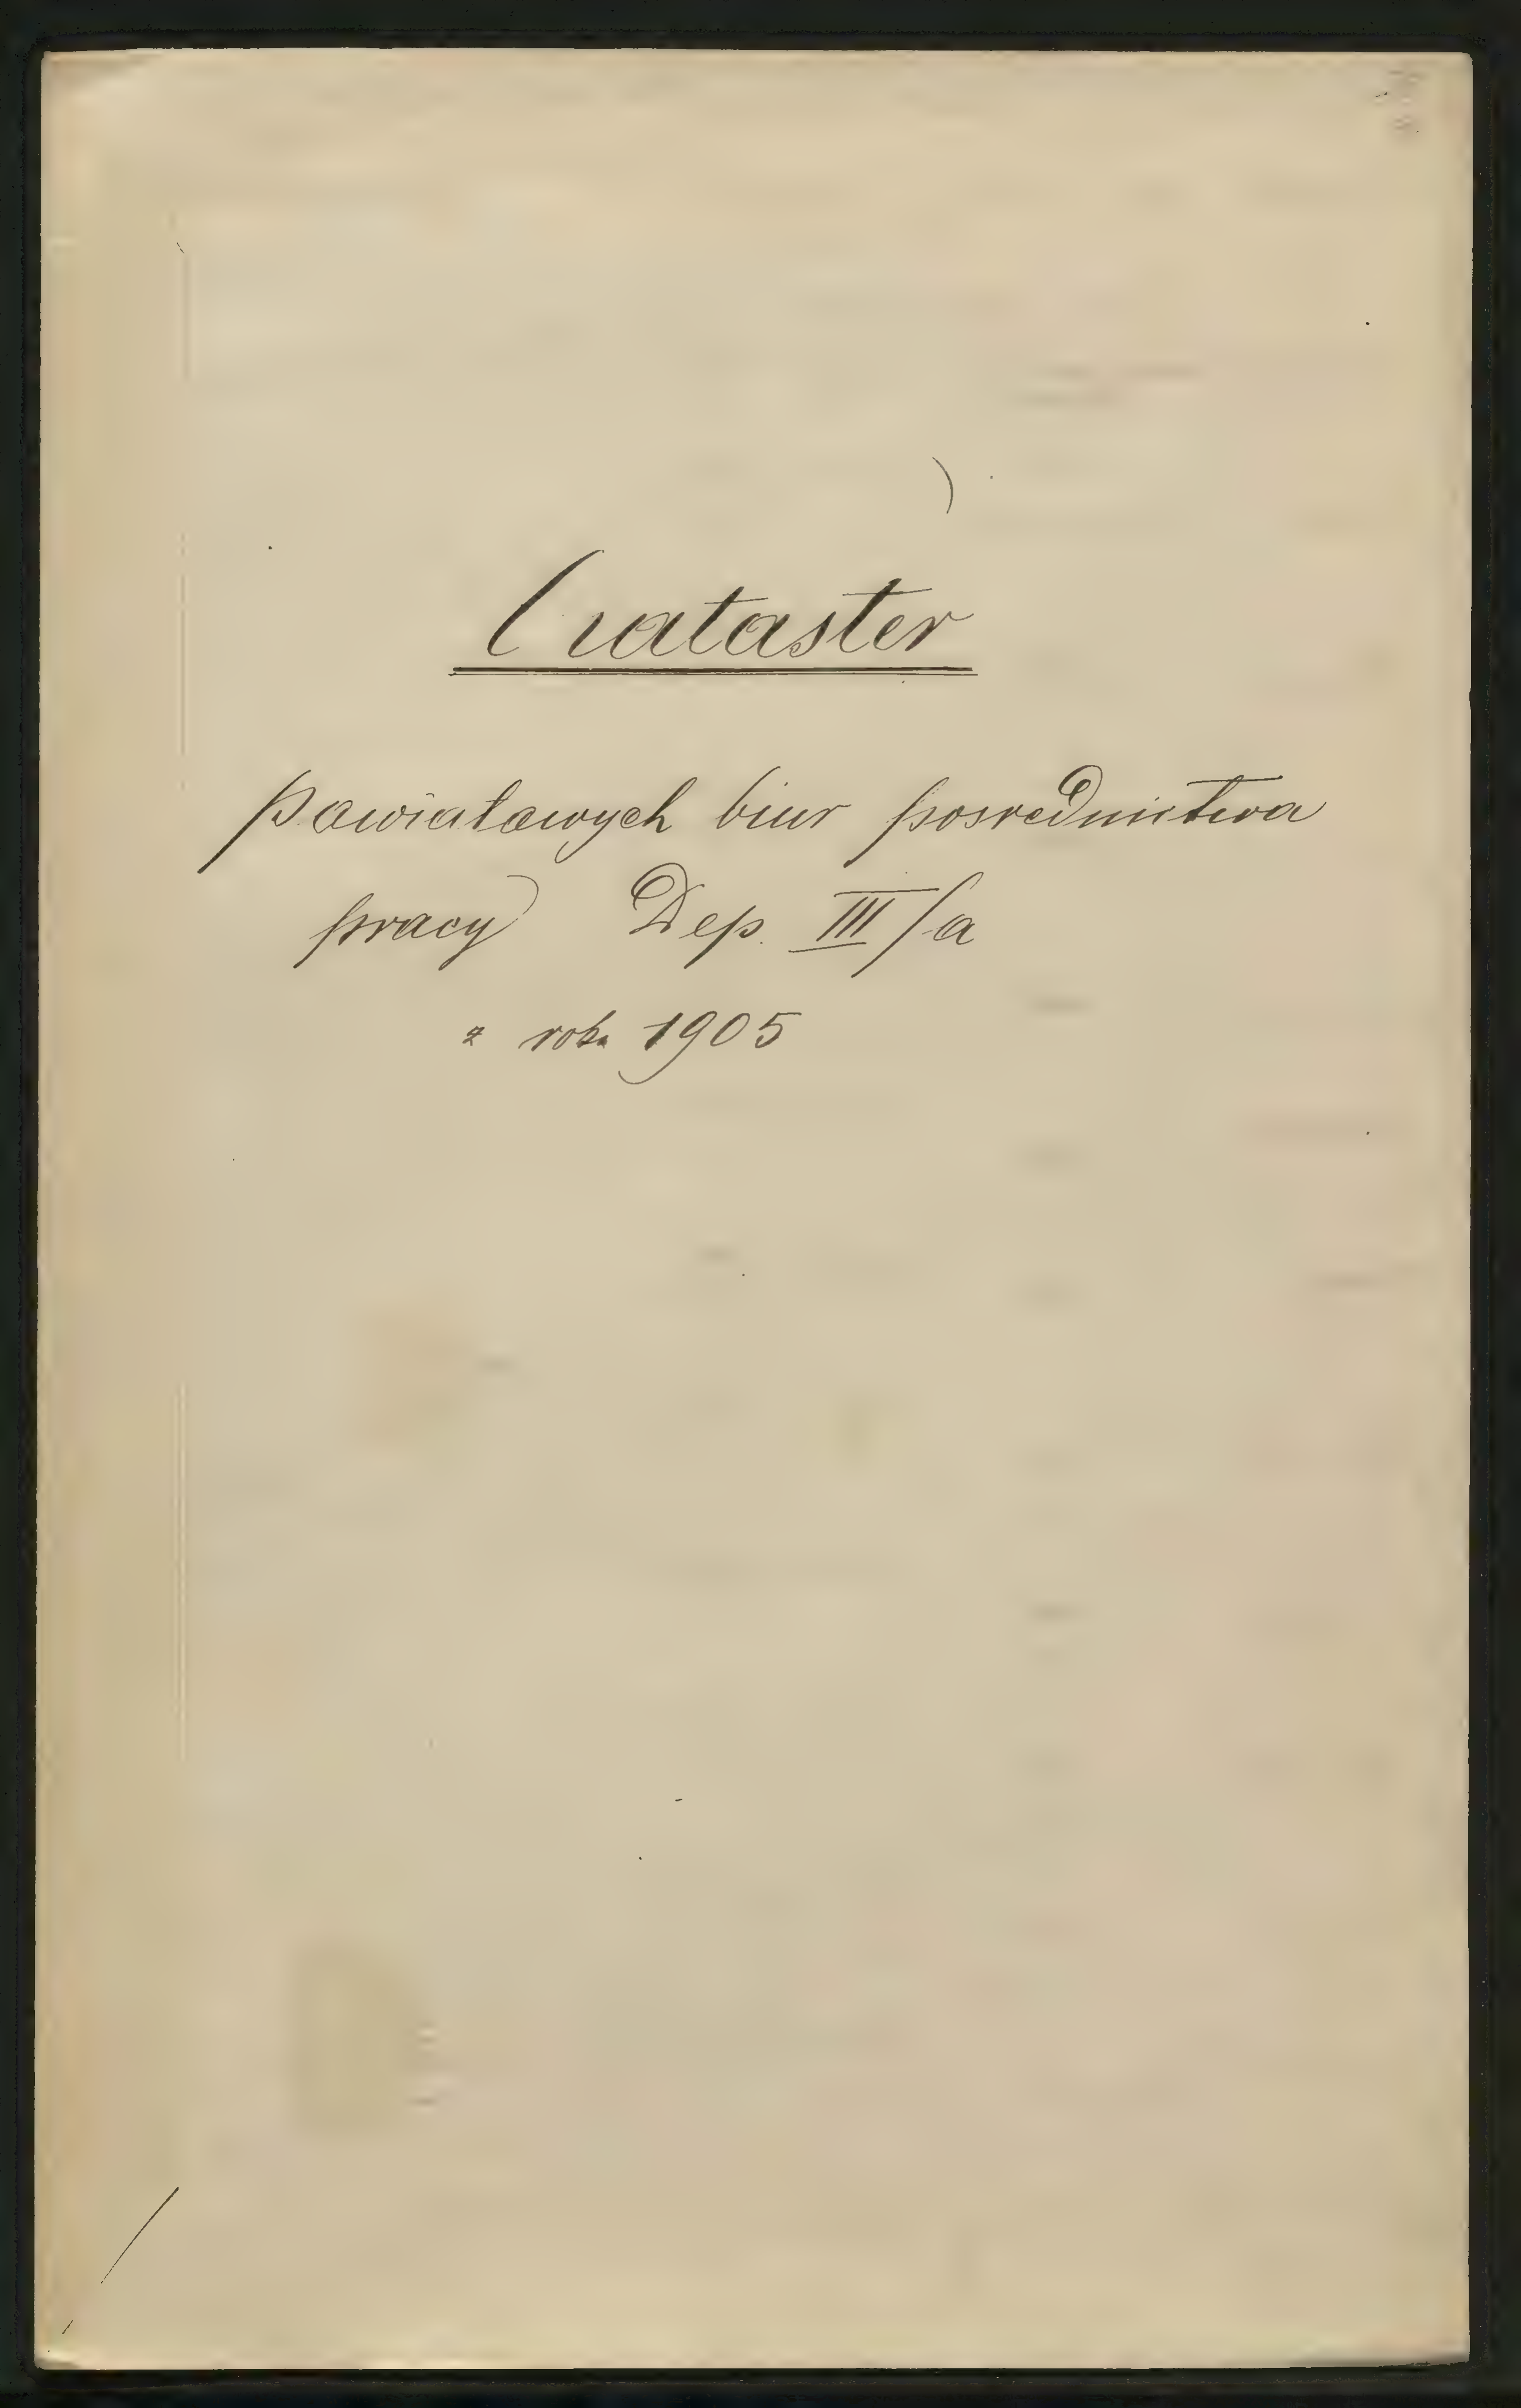 Cataster
powiatowych biur pośrednictwa
pracy Dep. III/a
z roku 1905